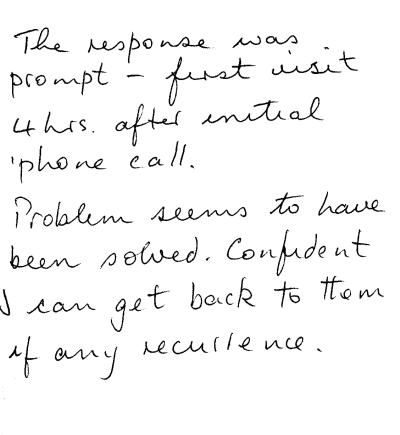 The response was
prompt – first visit
4 hrs. after initial
'phone call.
Problem seems to have
been solved. Confident
I can get back to them
if any recurrence.